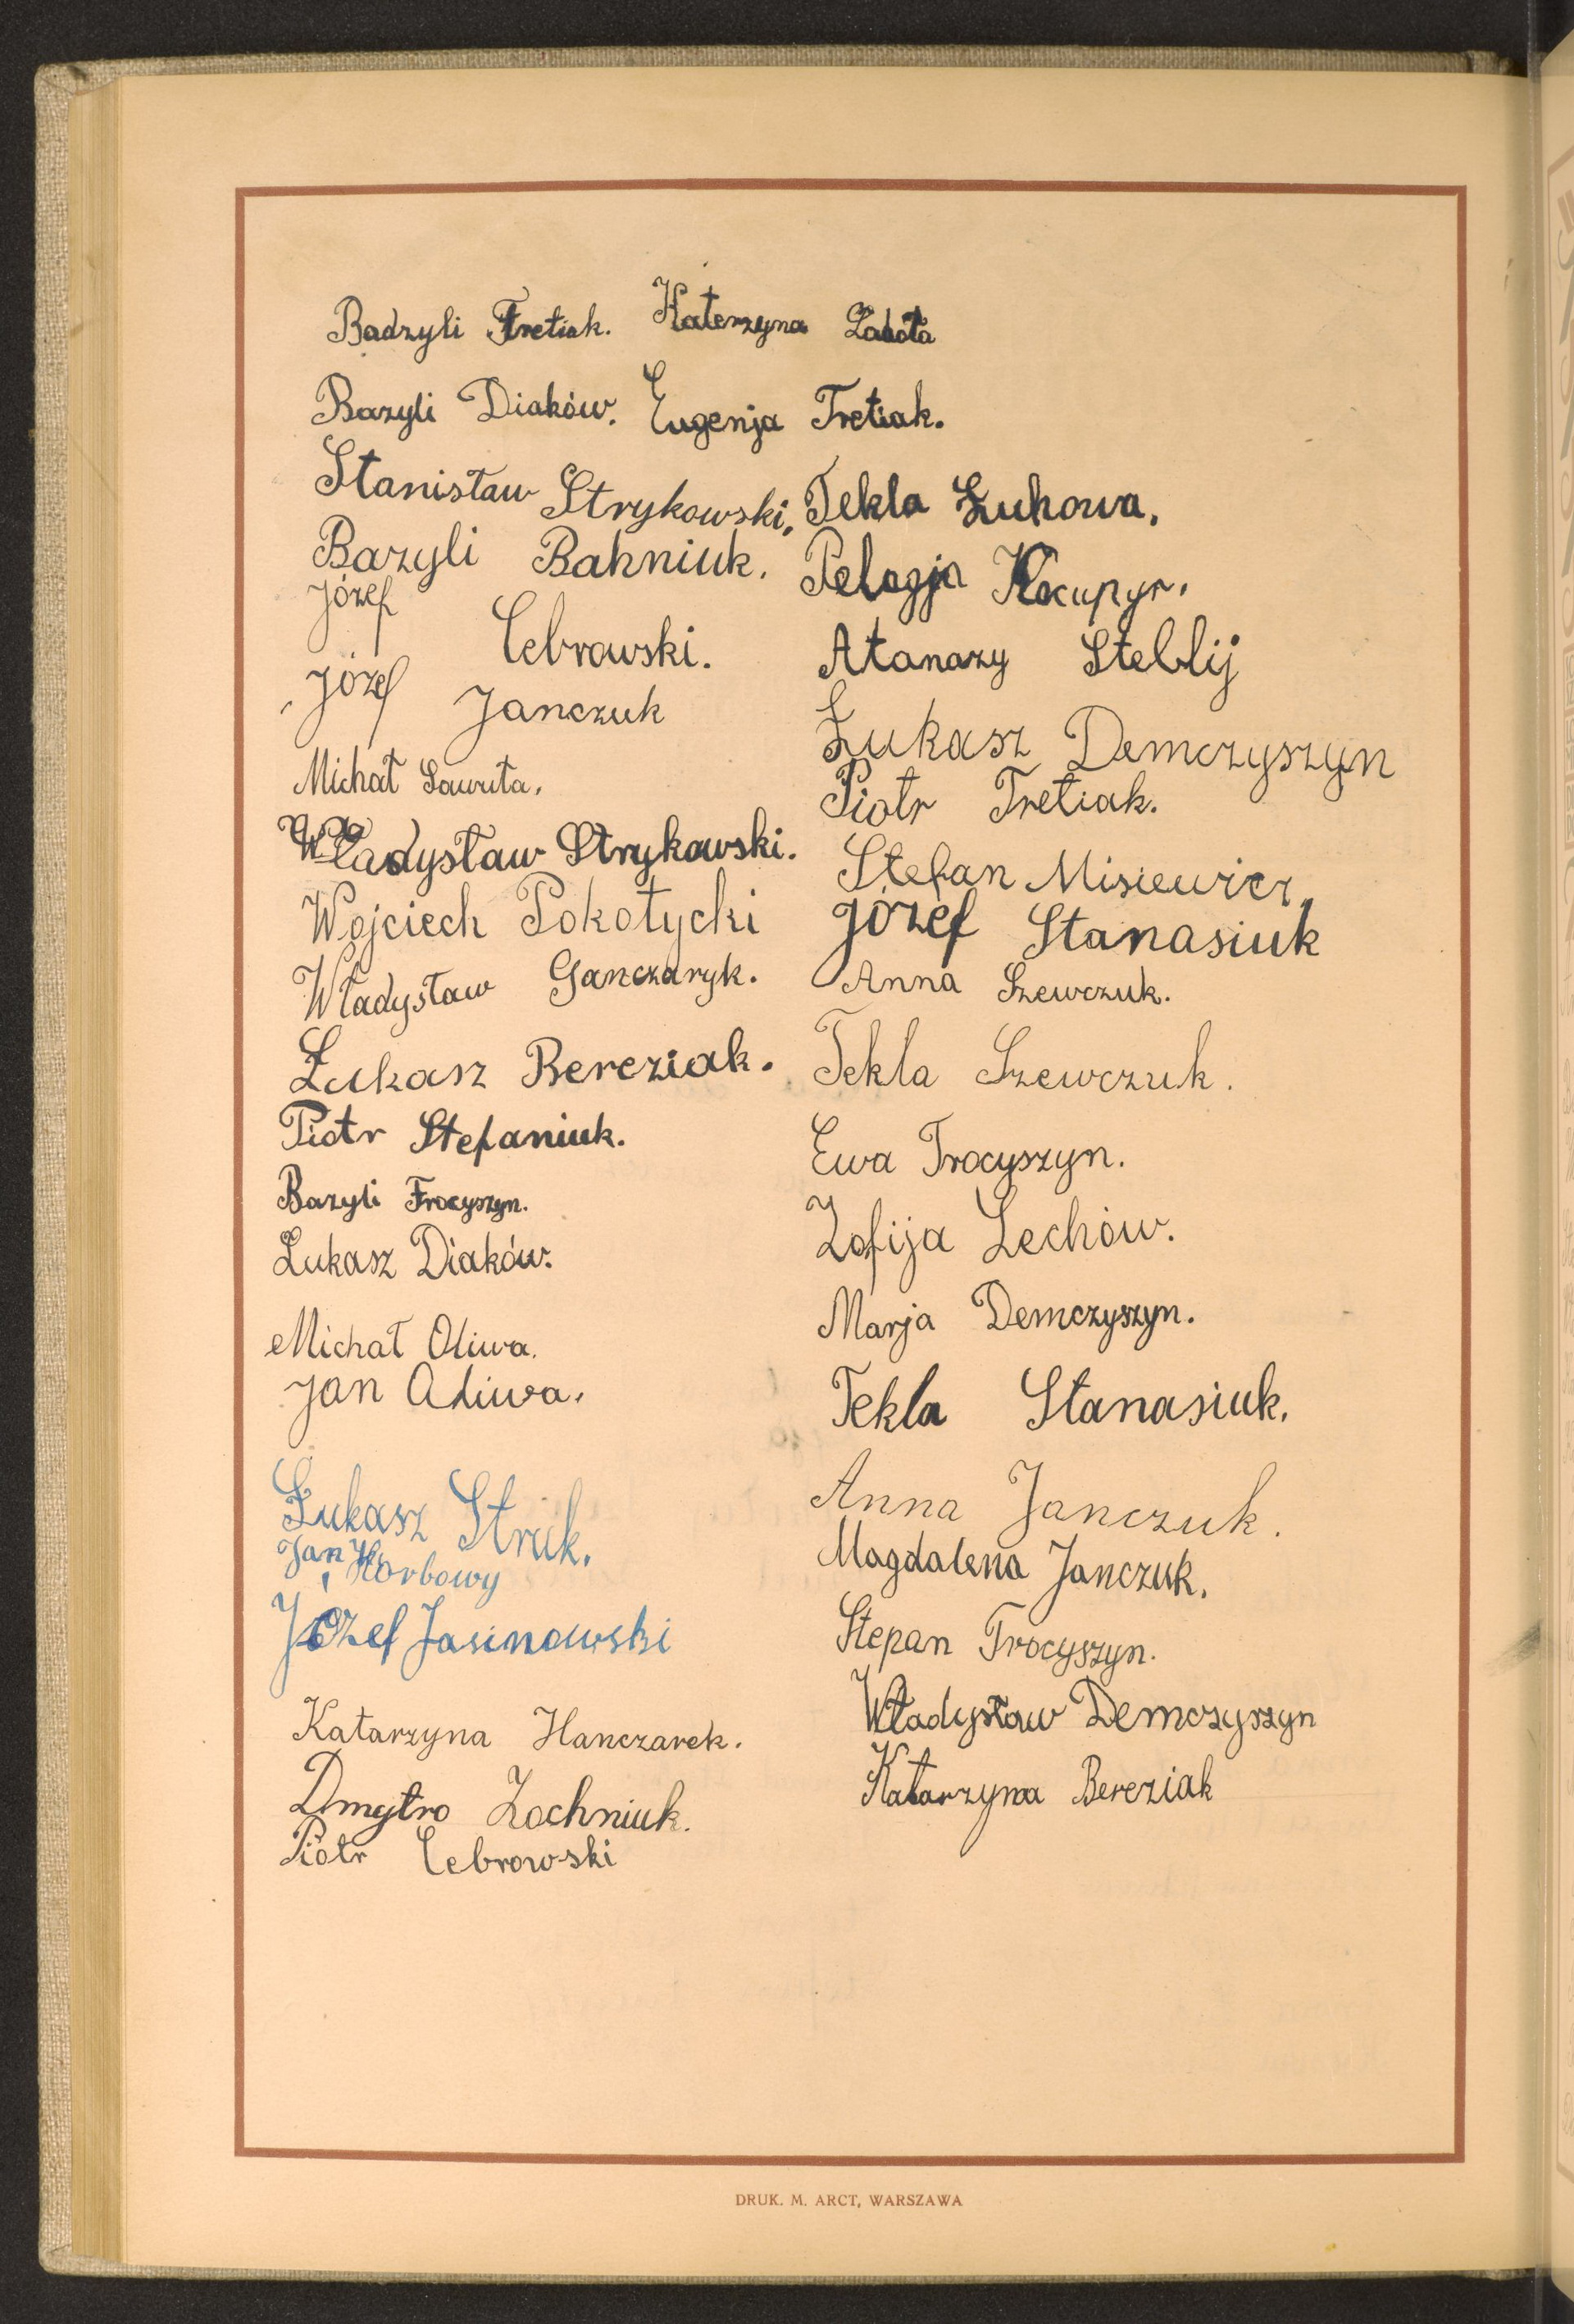 Badzyli Tretiak. Katerzyna Labota
Bazyli Diaków. Eugenja Tretiak.
Stanisław Strykowski,
Bazyli Bahniuk.
Józef Cebrowski.
Józef Janczuk
Michał Sawuta.
Władysław Strykowski.
Wojciech Pokotycki
Władysław Ganczaryk.
Łukasz Bereziak.
Piotr Stefaniuk.
Bazyli Trocyszyn.
Łukasz Diaków.
Michał Oliwa.
Jan Oliwa.
Łukasz Struk.
Jan Horbowy
Józef Jasinowski
Katarzyna Hanczarek.
Dmytro Zochniuk.
Piotr Cebrowski
Tekla Łuhowa.
Pelagja
Atanazy Steblij
Łukasz Demczyszyn
Piotr Tretiak.
Stefan Misiewicz,
Józef Stanasiuk
Anna Szewczuk.
Tekla Szewczuk.
Ewa Trocyszyn.
Zofija Lechów.
Marja Demczyszyn.
Tekla Stanasiuk.
Anna Janczuk.
Magdalena Janczuk.
Stepan Trocyszyn.
Władysław Demczyszyn
Katarzyna Bereziak
DRUK. M. ARCT, WARSZAWA